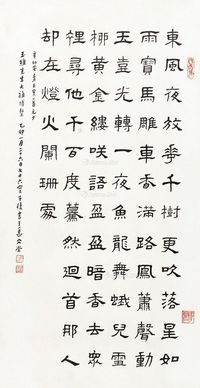 東風夜放花千樹更吹落星如
雨寶馬雕車香滿路鳳簫聲動
玉壺光轉一夜魚龍舞蛾兒雪
柳黃金縷咲語盈盈暗香去眾
裡尋他千百度驀然迴首那人
却在燈火闌珊處
辛幼安青玉案元夕